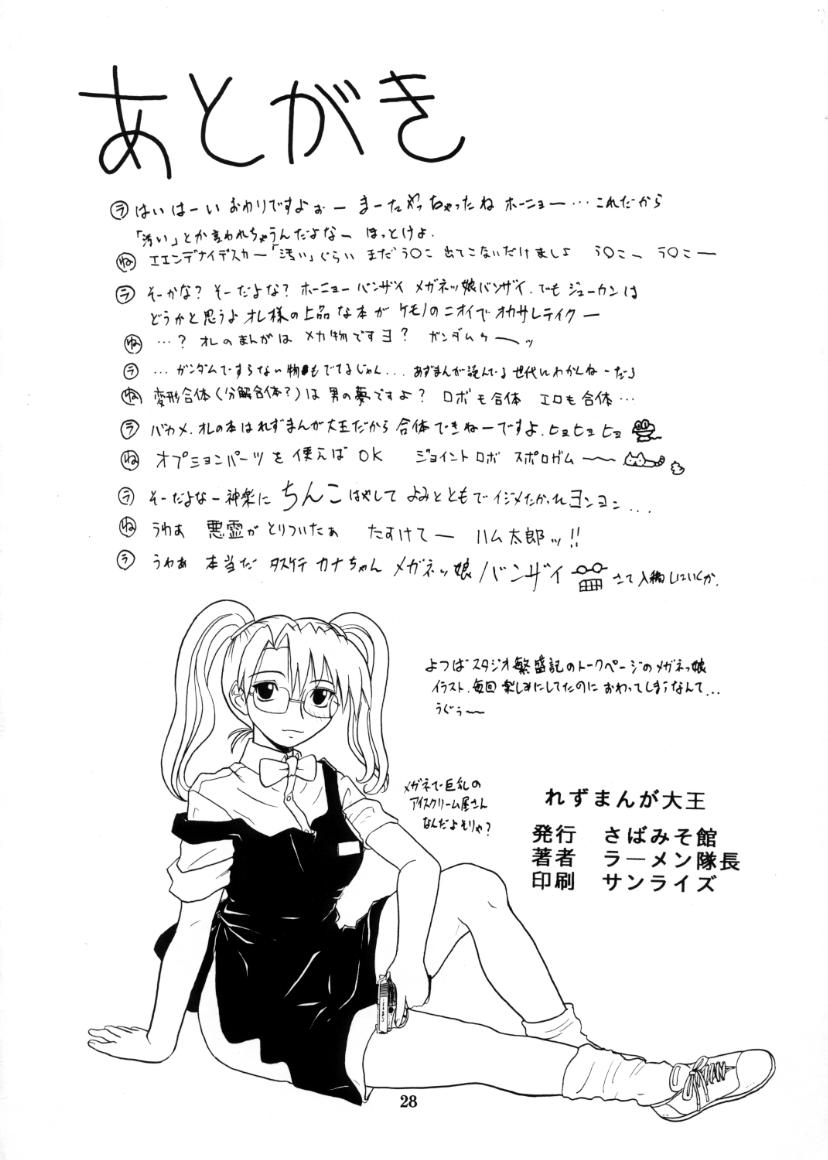 あとがき
ラ はいはーい おわりですよぉー まーたやっちゃったね ホーニョー…これだから
「汚い」とか言われちゃうんだよなー ほっとけよ.
ね エエンデナイデスカー「汚い」ぐらい まだう〇こ 出てこないだけましよ う〇こー う〇こー
ラ そーかな?そーだよな?ホーニョーバンザイ メガネッ娘バンザイ.でもジューカンは
どうかと思うよ オレ様の上品な本が ケモノのニオイでオカサレテイクー
ね …?オレのまんがは メカ物ですヨ? ガンダムゥーーッ
ラ …ガンダムですらない物もでてるじゃん...あずまんが読んでる世代にわかんねーだろ
ね 変形合体(分解合体?)は 男の夢ですよ? ロボも合体 エロも合体…
ラ バカメ.オレの本はれずまんが大王だから 合体できねーですよ.ヒョヒョヒョ
ね オプションパーツを使えばOK ジョイントロボ スポロガム〜〜
ラ そーだよなー神楽に ちんこはやして よみとともでイジメたかったヨンヨン...
ね うわあ 悪霊が とりついたぁ たすけてー ハム太郎ッ!!
ラ うわぁ 本当だ タスケテ カナちゃん メガネッ娘バンザイ さて入稿しにいくか.
よつばスタジオ繁盛記のトークページのメガネっ娘
イラスト.毎回楽しみにしてたのに おわってしまうなんて...
うぐぅ〜〜
メガネで巨乳の
アイスクリーム屋さん
なんだよそりゃ?
れずまんが大王
発行 さばみそ館
著者 ラーメン隊長
印刷 サンライズ
28